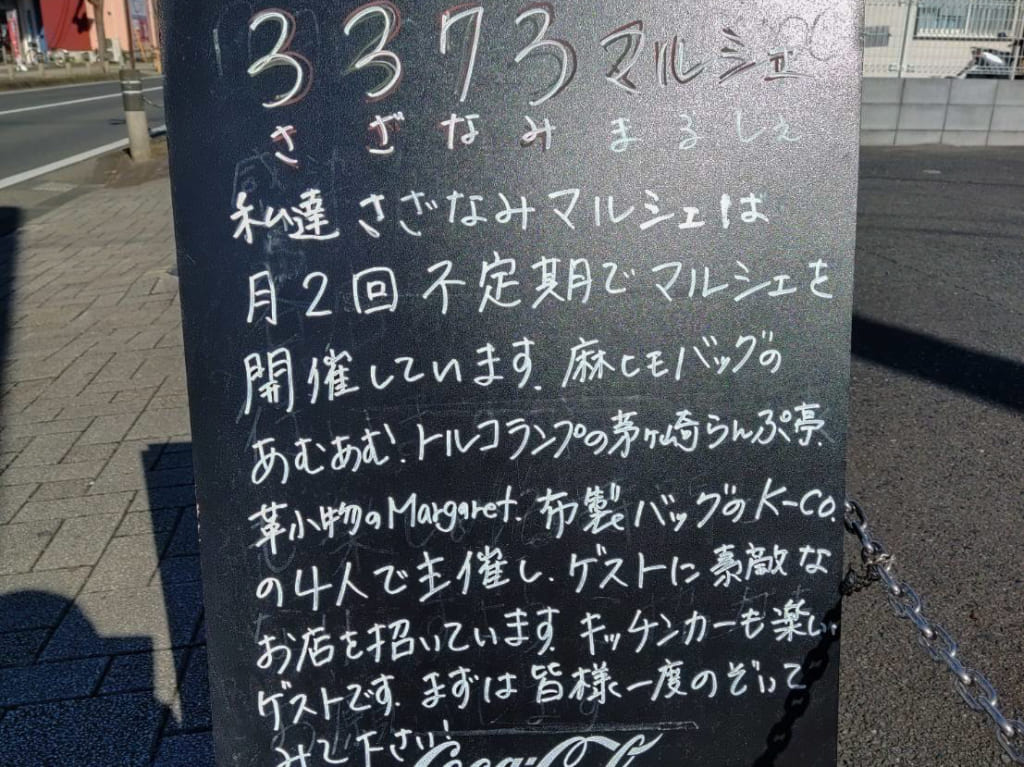 3373マルシェ
さざなみまるしぇ
私達さざなみマルシェは
月2回不定期でマルシェを
開催しています。麻ヒモバッグの
あむあむ!トルコランプの茅ヶ崎らんぷ亭、
革小物のMargaret、布製バッグのK-Co.
の4人で主催し、ゲストに素敵な
お店を招いています。キッチンカーも楽しい
ゲストです。まずは皆様一度のぞいて
みて下さい!
Coca-Co